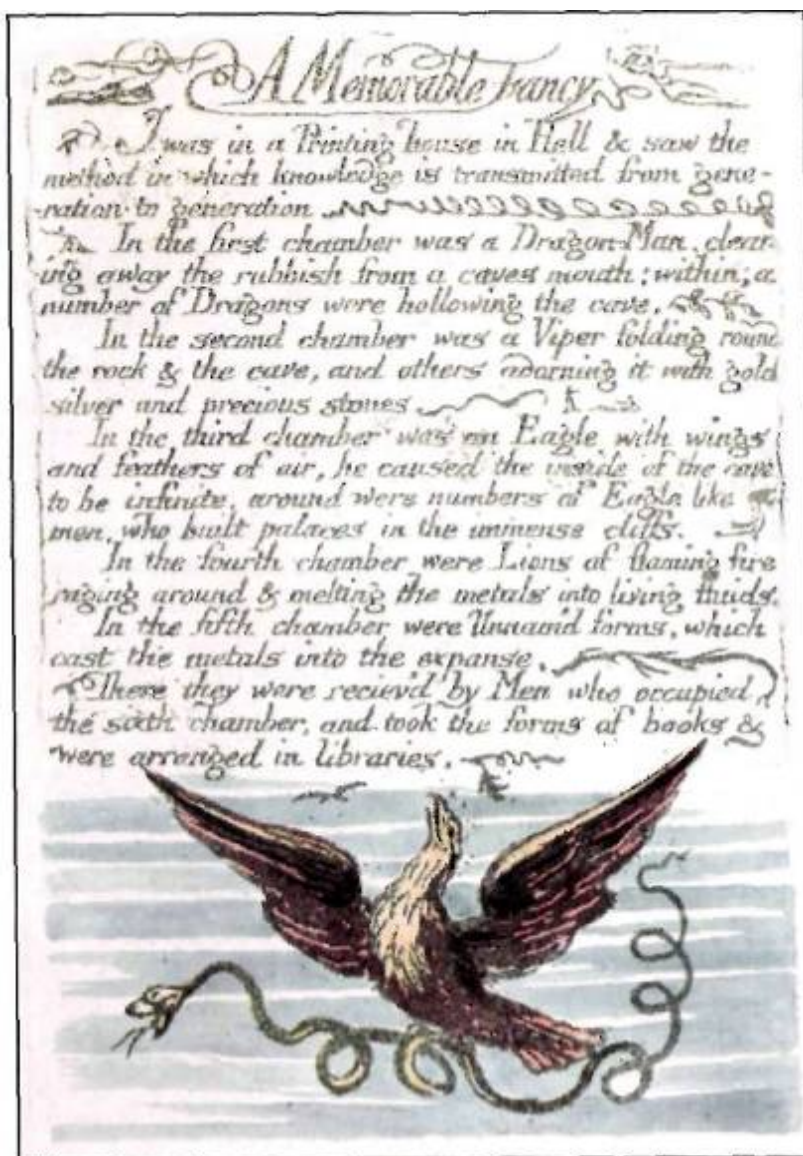 A Memorable Fancy
I was in a Printing house in Hell & saw the
method in which knowledge is transmitted from gene-
-ration to generation
In the first chamber was a Dragon-Man, clear-
ing away the rubbish from a caves mouth; within, a
number of Dragons were hollowing the cave,
In the second chamber was a Viper folding round
the rock & the cave, and others adorning it with gold
silver and precious stones
In the third chamber was an Eagle with wings
and feathers of air, he caused the inside of the cave
to be infinite, around were numbers of Eagle like
men, who built palaces in the immense cliffs.
In the fourth chamber were Lions of flaming fire
raging around & melting the metals into living fluids.
In the fifth chamber were Unnam'd forms, which
cast the metals into the expanse,
There they were reciev'd by Men who occupied
the sixth chamber, and took the forms of books &
were arranged in libraries.